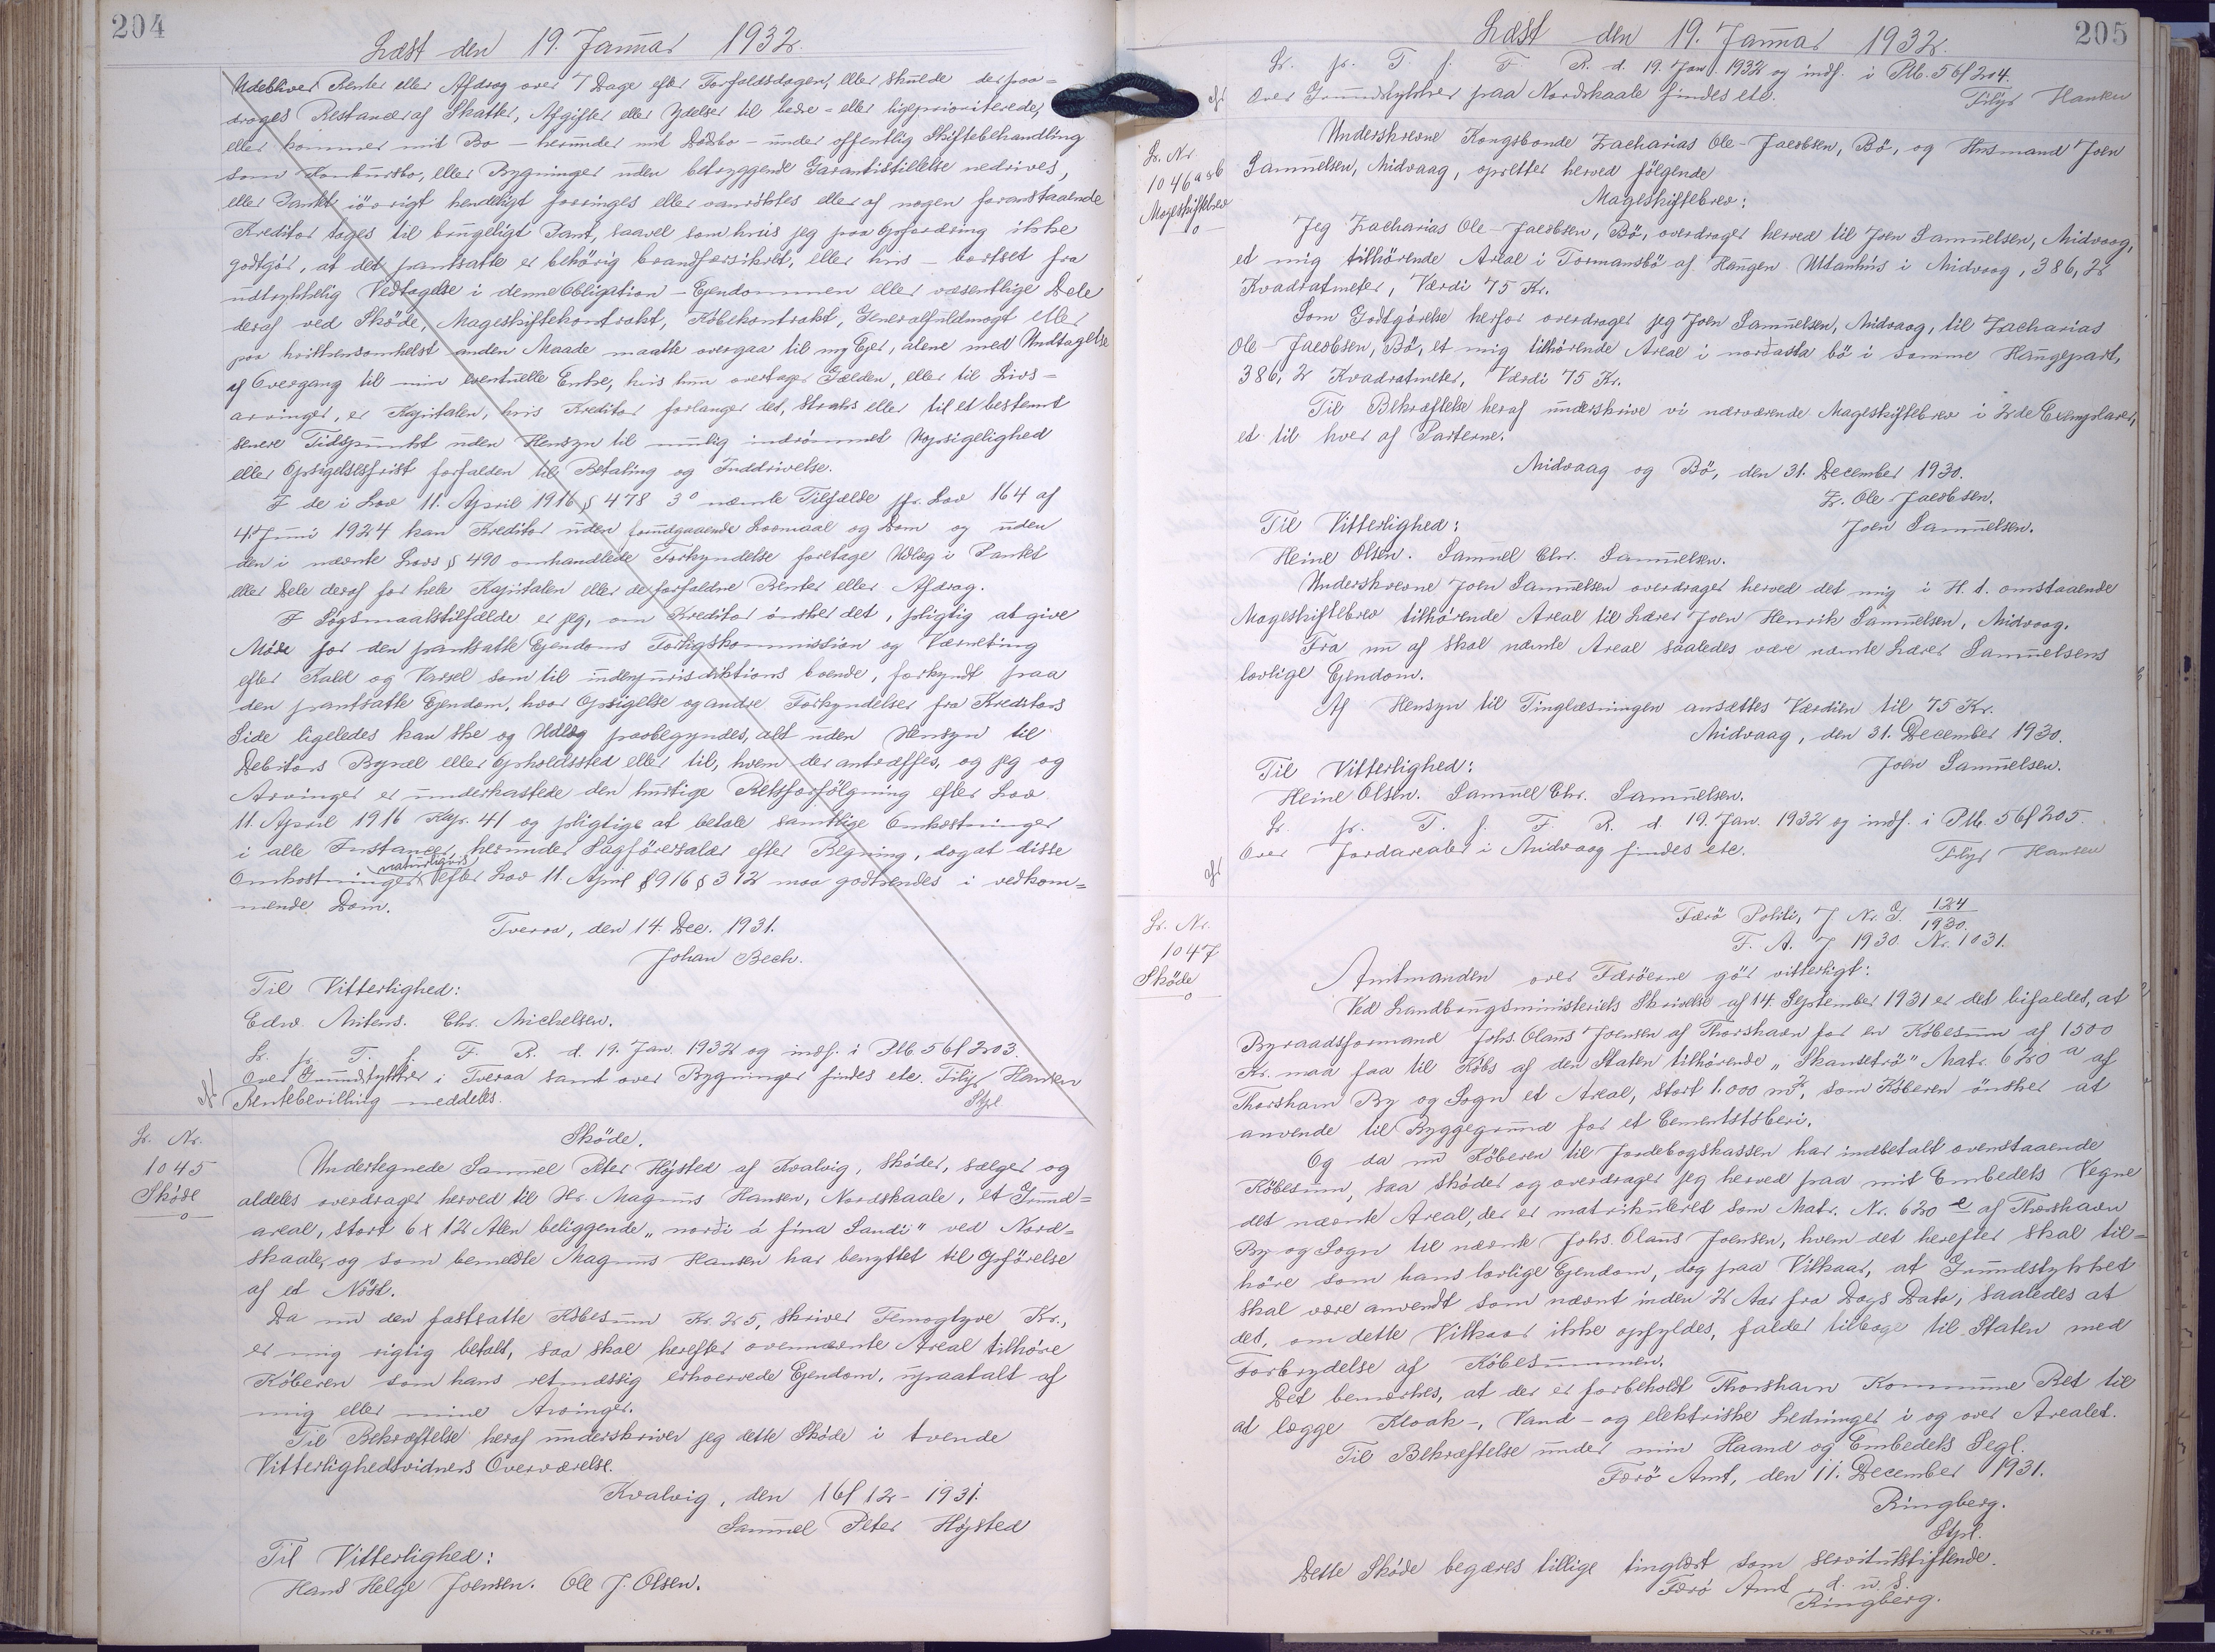 204
Læst den 19. Januar 1932.
Udebliver Renter eller Afdrag over 7 Dage efter Forfaldsdagen, eller skulde der paa=
drages Restancer af Skatter, Afgifter eller Ydelser til bedre- eller ligeprioriterede,
eller kommer mit Bo – herunder mit Dødsbo – under offentlig Skiftebehandling
som Konkursbo, eller Bygninger uden betryggende Garantistillelse nedrives,
eller Pantet iövrigt kendeligt forringes eller vanrögtes eller af nogen foranstaaende
Kreditor tages til brugeligt Pant, saavel som hvis jeg paa Opfordring ikke
godtgör, at det pantsatte er behörig brandforsikret, eller hvis – bortset fra
udtrykkelig Vedtagelse i denne Obligation – Ejendommen eller væsentlige Dele
deraf ved Sköde, Mageskiftekontrakt, Købekontrakt, Generalfuldmagt eller
paa hvilkensomhelst anden Maade maatte overgaa til ny Ejer, alene med Undtagelse
af Overgang til min eventuelle Enke, hvis hun overtager Gælden, eller til Livs=
arvinger, er Kapitalen, hvis Kreditor forlanger det, straks eller til et bestemt
senere Tidspunkt uden Hensyn til mulig indrömmet Uopsigelighed
eller Opsigelsesfrist forfalden til Betaling og Inddrivelse.
I de i Lov 11. April 1916 § 478 3° nævnte Tilfælde jfr. Lov 164 af
4. Juni 1924 kan Kreditor uden forudgaaende Lovmaal og Dom og uden
den i nævnte Lovs § 490 omhandlede Forkyndelse foretage Udlæg i Pantet
eller Dele deraf for hele Kapitalen eller de forfaldne Renter eller Afdrag.
I Søgsmaalstilfælde er jeg, om Kreditor önsker det, pligtig at give
Møde for den pantsatte Ejendoms Forligskommission og Værneting
efter Kald og Varsel som til indenjurisdiktions boende, forkyndt paa
den pantsatte Ejendom, hvor Opsigelse og andre Forkyndelser fra Kreditors
Side ligeledes kan ske og Udlæg paabegyndes, alt uden Hensyn til
Debitors Bopæl eller Opholdssted eller til, hvem der antræffes, og jeg og
Arvinger er underkastede den hurtige Retsforfölgning efter Lov
11. April 1916 Kap. 41 og pligtige at betale samtlige Omkostninger
i alle Instancer, herunder Sagförersalær efter Regning, dog at disse
Omkostninger naturligvis efter Lov 11. April 1916 § 312 maa godkendes i vedkom=
mende Dom.
Tveraa, den 14. Dec. 1931.
Johan Bech.
Til Vitterlighed:
Edw. Mitens. Chr. Michelsen.
Lr. pr. T. f. F. R. d. 19. Jan. 1932 og indf. i Ptb. 56f 203.
Over Grundstykker i Tveraa samt over Bygninger findes etc. Tilje Hansen
Rentebevilling meddeles. Stpl.
Lr. Nr.
1045
Sköde
Sköde.
Undertegnede Samuel Peter Højsted af Kvalvig, sköder, sælger og
aldeles overdrager herved til Hr. Magnus Hansen, Nordskaale, et Grund=
areal, stort 6 x 12 Alen beliggende „norði á fina Sandi" ved Nord=
skaale, og som bemeldte Magnus Hansen har benyttet til Opförelse
af et Nöst.
Da nu den fastsatte Købesum Kr. 25, skriver Femogtyve Kr.,
er mig rigtig betalt, saa skal herefter ovennævnte Areal tilhöre
Köberen som hans retmæssig erhvervede Ejendom, upaatalt af
mig eller mine Arvinger.
Til Bekræftelse heraf underskriver jeg dette Sköde i tvende
Vitterlighedsvidners Overværelse.
Kvalvig, den 16/12 - 1931.
Samuel Peter Højsted
Til Vitterlighed:
Hans Helge Joensen. Ole J. Olsen.
205
Læst den 19. Januar 1932.
Lr. pr. T. f. F. R. d. 19. Jan. 1932 og indf. i Ptb. 56f 204.
Over Grundstykker paa Nordskaale findes etc. Tilje Hansen
Lr. Nr.
1046 a & b
Mageskiftebrev
Underskrevne Kongsbonde Zacharias Ole-Jacobsen, Bö, og Husmand Joen
Samuelsen, Midvaag, opretter herved fölgende
Mageskiftebrev:
Jeg Zacharias Ole-Jacobsen, Bö, overdrager herved til Joen Samuelsen, Midvaag,
et mig tilhörende Areal i Tormansbö af Haugen Utanhus i Midvaag, 386,2
Kvadratmeter, Værdi 75 Kr.
Som Godtgörelse herfor overdrager jeg Joen Samuelsen, Midvaag, til Zacharias
Ole-Jacobsen, Bö, et mig tilhörende Areal i norðasta bö i samme Haugepart,
386,2 Kvadratmeter, Værdi 75 Kr.
Til Bekræftelse heraf underskrive vi nærværende Mageskiftebrev i 2de Exemplarer,
et til hver af Parterne.
Midvaag og Bö, den 31. December 1930.
Z. Ole Jacobsen.
Til Vitterlighed: Joen Samuelsen.
Heine Olsen. Samuel Chr. Samuelsen.
Underskrevne Joen Samuelsen overdrager herved det mig i H. t. omstaaende
Mageskiftebrev tilhörende Areal til Lærer Joen Henrik Samuelsen, Midvaag.
Fra nu af skal nævnte Areal saaledes være nævnte Lærer Samuelsens
lovlige Ejendom.
Af Hensyn til Tinglæsningen ansættes Værdien til 75 Kr.
Midvaag, den 31. December 1930.
Til Vitterlighed: Joen Samuelsen.
Heine Olsen. Samuel Chr. Samuelsen.
Lr. pr. T. f. F. R. d. 19. Jan. 1932 og indf. i Ptb. 56f 205.
Over Jordarealer i Midvaag findes etc. Tilje Hansen
Lr. Nr.
1047
Sköde
Færö Politi, J. Nr. G. 124/1930.
F. A. J. 1930 Nr. 1031.
Amtmanden over Færöerne gör vitterligt:
Ved Landbrugsministeriets Skrivelse af 14. September 1931 er det bifaldet, at
Byraadsformand Johs. Olaus Joensen af Thorshavn for en Købesum af 1500
Kr. maa faa til Købs af den Staten tilhörende „Skansetrö" Matr. 620 a af
Thorshavn By og Sogn et Areal, stort 1.000 m², som Köberen önsker at
anvende til Byggegrund for et Cementstöberi.
Og da nu Köberen til Jordebogskassen har indbetalt ovenstaaende
Købesum, saa sköder og overdrager jeg herved paa mit Embedets Vegne
det nævnte Areal, der er matrikuleret som Matr. Nr. 620 e af Thorshavn
By og Sogn til nævnte Johs. Olaus Joensen, hvem det herefter skal til=
höre som hans lovlige Ejendom, dog paa Vilkaar, at Grundstykket
skal være anvendt som nævnt inden 2 Aar fra Dags Dato, saaledes at
det, om dette Vilkaar ikke opfyldes, falder tilbage til Staten med
Forbrydelse af Købesummen.
Det bemærkes, at der er forbeholdt Thorshavn Kommune Ret til
at lægge Kloak-, Vand- og elektriske Ledninger i og over Arealet.
Til Bekræftelse under min Haand og Embedets Segl.
Færö Amt, den 11. December 1931.
Ringberg.
Stpl.
Dette Sköde begæres tillige tinglæst som servitutstiftende.
Færö Amt, d. u. s.
Ringberg.